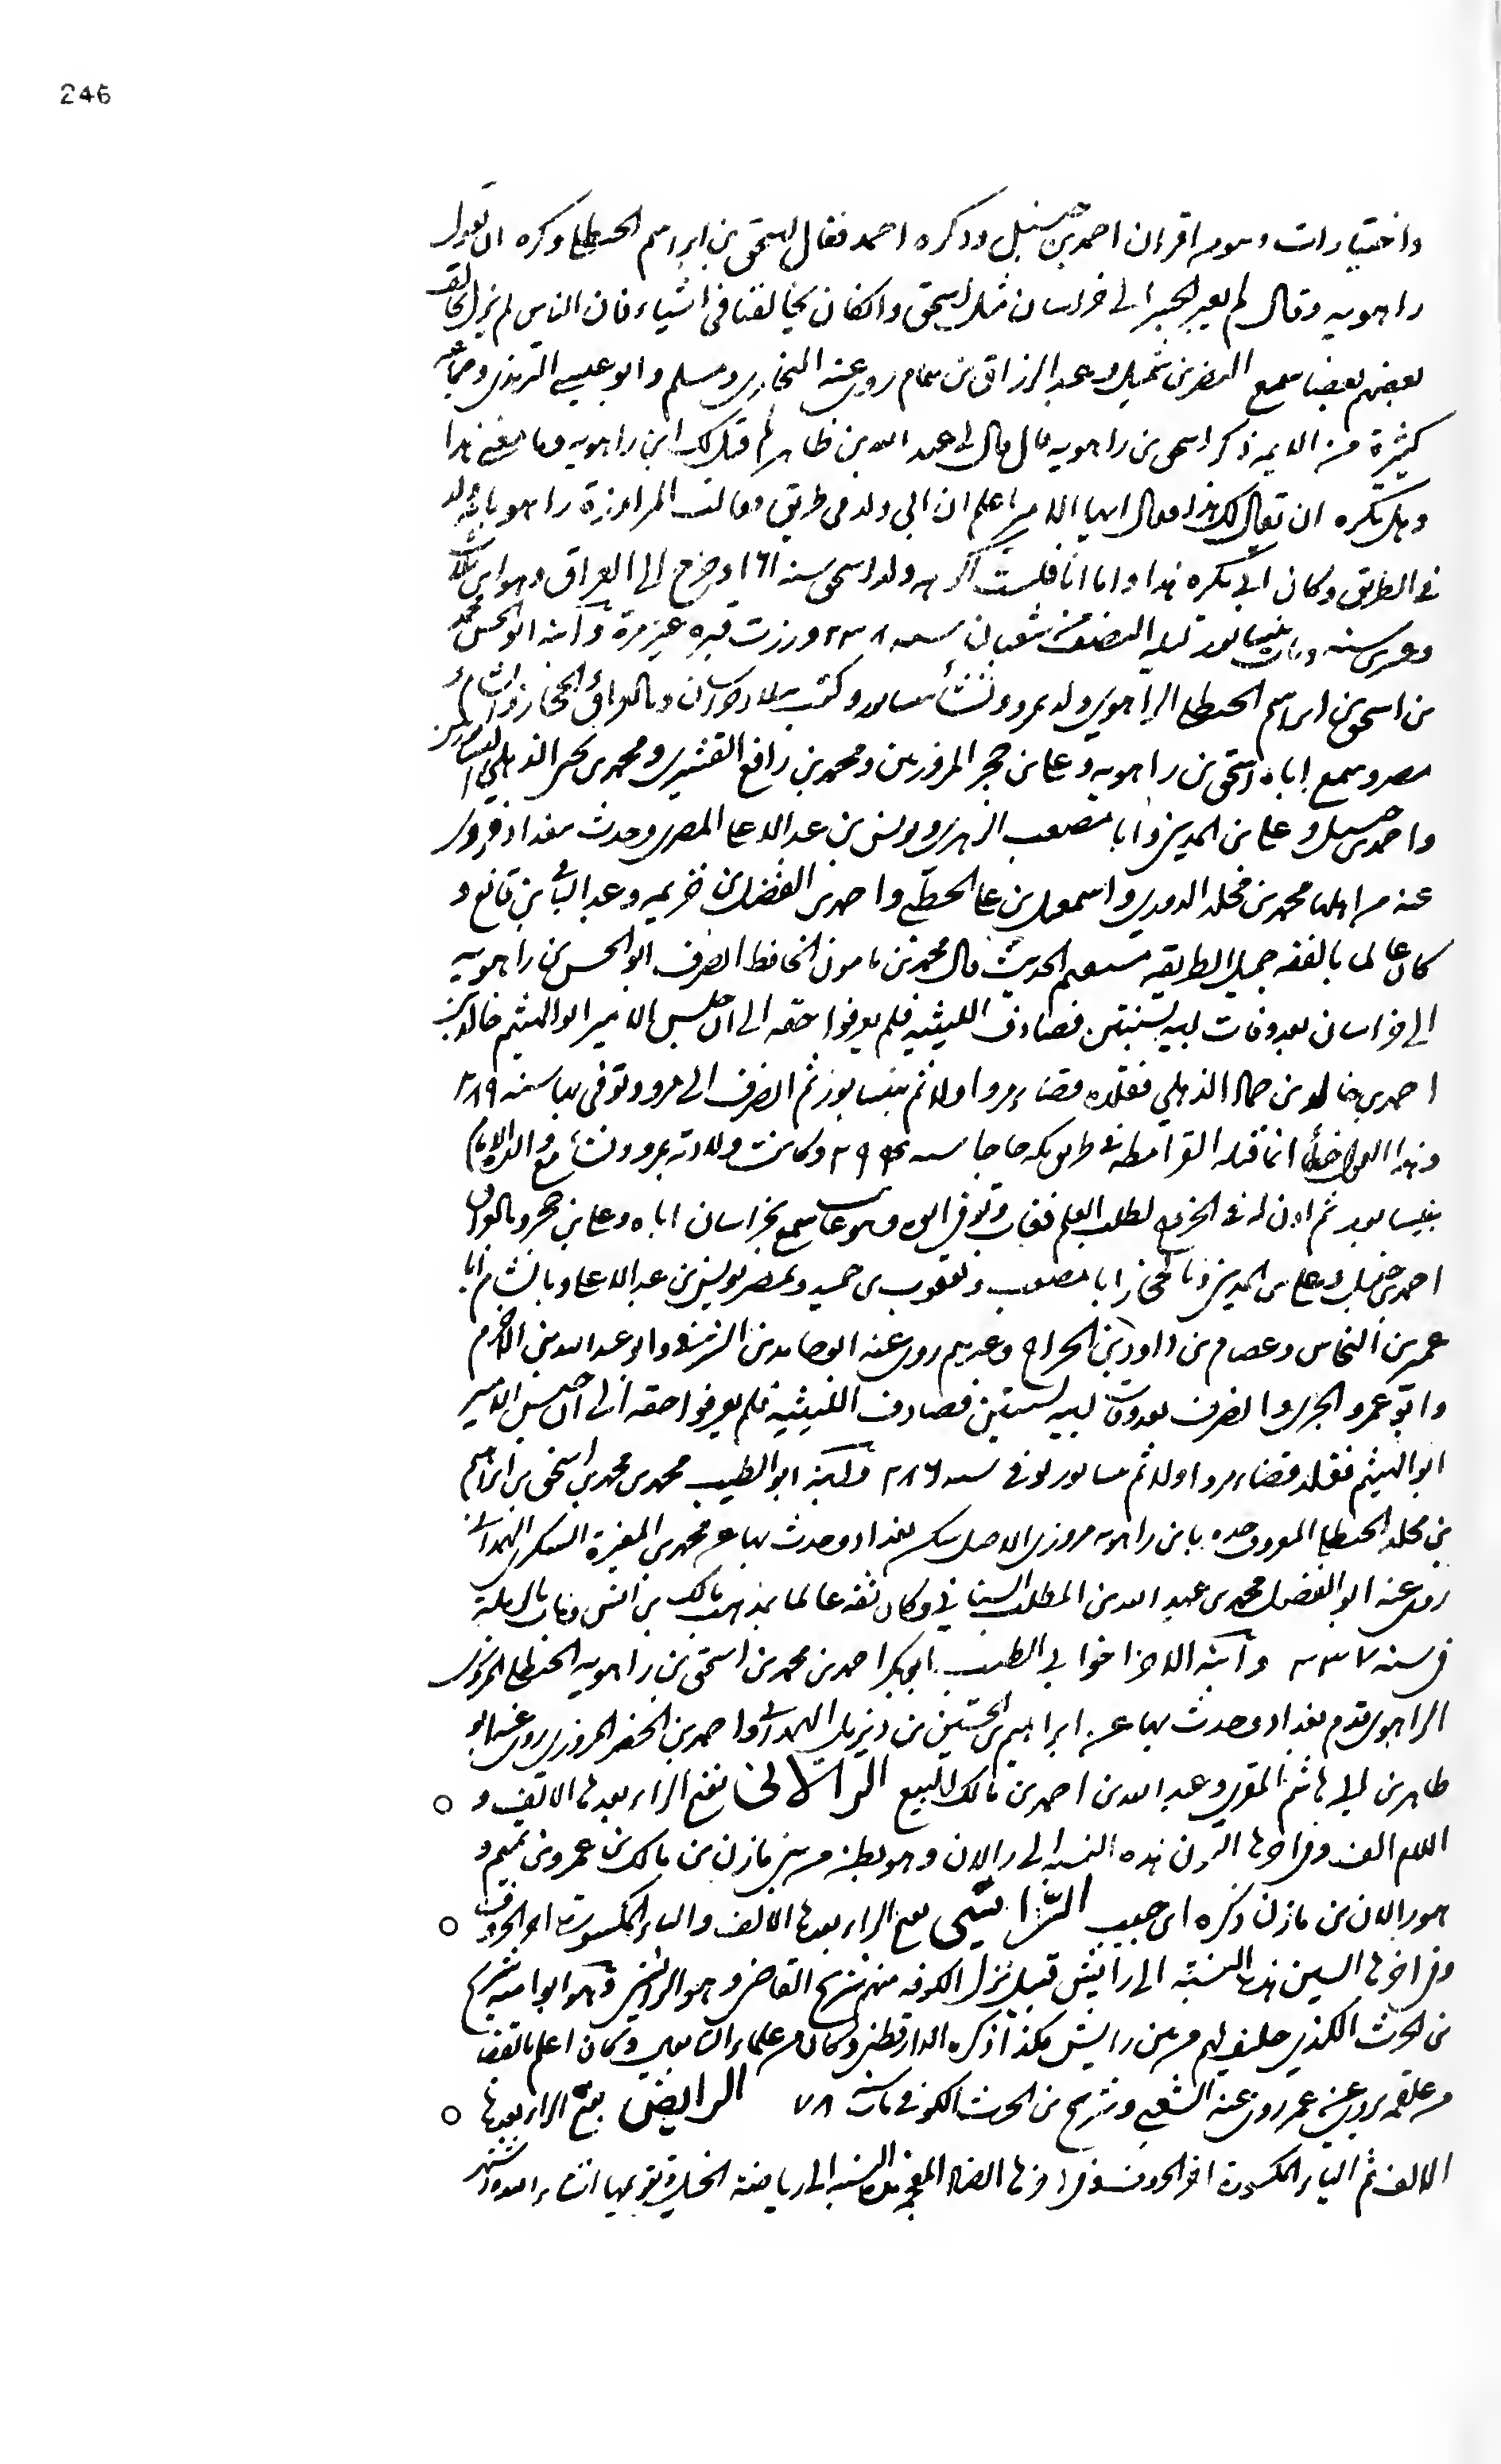 246
واختيارات وهو من اقران احمد بن حنبل وذكره احمد فقال اسحق بن ابراهيم الحنظلي وكره ان يقول
راهويه وقال لم يعبر الجسر الى خراسان مثل اسحق وان كان يخالفنا في اشياء فان الناس لم يزل يخالف
بعضهم بعضا سمع النضر بن شميل وعبد الرزاق بن همام روى عنه البخاري ومسلم وابو عيسى الترمذي وجماعة
كثيرة من الايمه ذكر اسحق بن راهويه قال قال لي عبد الله بن طاهر لم قيل لك ابن راهويه وما معنى هذا
وهل تكره ان يقال لك هذا فقال ايها الامير اعلم ان ابي ولد في طريق فقالت المراوزة راهويه بانه ولد
في الطريق وكان ابي يكره هذا واما انا فلست اكرهه ولد اسحق سنه ١٦١ وخرج الى العراق وهو ابن ثلث
وعشرين سنه ومات بنيسابور ليله النصف من شعبان سنه ٢٣٨ وزرت قبره غير مرة وابنه ابو الحسن محمد
بن اسحق بن ابراهيم الحنظلي الراهويي ولد بمرو ونشأ بنيسابور وكتب ببلاد خراسان وبالعراق والحجاز والشام و
مصر وسمع اباه اسحق بن راهويه وعلي بن حجر المروزيين ومحمد بن رافع القشيري ومحمد بن يحيى الذهلي النيسابوريين
واحمد بن حنبل وعلي بن المديني وابا مصعب الزهري ويونس بن عبد الاعلى المصري وحدث ببغداد فروى
عنه من اهلها محمد بن مخلد الدوري واسمعيل بن علي الخطبي واحمد بن الفضل بن خزيمه وعبد الباقي بن قانع و
كان عالما بالفقه جميل الطريقه مستقيم الحديث قال محمد بن مامون الحافظ انصرف ابو الحسن بن راهويه
الى خراسان بعد وفات ابيه بسنتين فصادف الليثيه فلم يعرفوا حقه الى ان جلس الامير ابو الهيثم خالد بن
احمد بن خالد بن حماد الذهلي فقلده قضاء مرو اولا ثم نيسابور ثم انصرف الى مرو وتوفي بها سنه ٢٨٩
وهذا القول خطأ انما قتله القرامطه في طريق مكه حاجا سنه ٢٩٤ وكانت ولادته بمرو ونشأ مع
بنيسابور ثم اذن له في الخروج لطلب العلم فغاب وتوفي ابوه وهو غايب سمع بخراسان اباه وعلي بن حجر وبالعراق
احمد بن حنبل وعلي بن المديني وبالحجاز ابا مصعب ويعقوب بن حميد وبمصر يونس بن عبد الاعلى وبالشام ابا
عمير بن النحاس وعصام بن داود بن الجراح وغيرهم روى عنه ابو حامد بن الشرقي وابو عبد الله بن الاخرم
وابو عمرو الحيري وانصرف بعد وفات ابيه بسنتين فصادف الليثيه فلم يعرفوا حقه الى ان جلس الامير
ابو الهيثم فقلد قضاء مرو اولا ثم نيسابور توفي سنه ٢٨٩ وابنه ابو الطيب محمد بن محمد بن اسحق بن ابراهيم
بن مخلد الحنظلي المعروف جده بابن راهويه مروزي الاصل سكن بغداد وحدث بها عن محمد بن المغيرة السكري الهمداني
روى عنه ابو الفضل محمد بن عبد الله بن المطلب الشيباني وكان ثقه عالما بمذهب مالك بن انس ومات بالرملة
في سنه ٣٣٧ وابنه الاخر اخو ابي الطيب ابو بكر احمد بن محمد بن اسحق بن راهويه الحنظلي المروزي
الراهويي قدم بغداد وحدث بها عن ابراهيم بن الحسين بن ديزيل الهمداني واحمد بن الخضر المروزي روى عنه ابو
طاهر بن ابي هاشم المقري وعبد الله بن احمد بن مالك البيع الرالاني بفتح الراء بعدها الالف و
اللام الف وفي اخرها النون هذه النسبه الى رالان وهو بطن من بني مازن بن مالك بن عمرو بن تميم و
هو رالان بن مازن ذكره ابن حبيب الرايشي بفتح الراء بعدها الالف والياء المكسورة اخر الحروف
وفي اخرها الشين هذه النسبه الى رايش قبيل نزل الكوفه منهم شريح القاضي وهو الرايشي وهو ابو اميه شريح
بن الحرث الكندي حليف لهم من بني رايش هكذا ذكره الدارقطني وكان من علماء التابعين وكان اعلم بالقضا
من علقمه يروي عن عمر روى عنه الشعبي وشريح بن الحرث الكوفي مات سنه ٧٨ الرايض بفتح الراء بعدها
الالف ثم الياء المكسورة اخر الحروف وفي اخرها الضاد المعجمه هذه النسبه الى رياضة الخيل وتقويمها ان شاء الله واشتهر